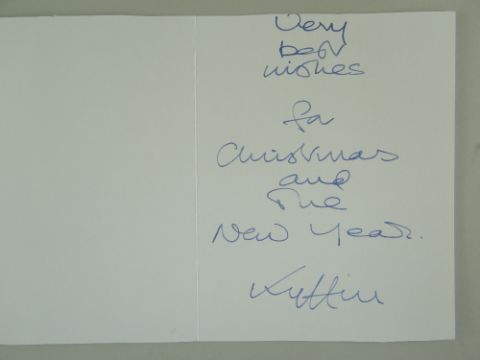 Very
best
wishes
for
Christmas
and
the
New Year.
Kyffin